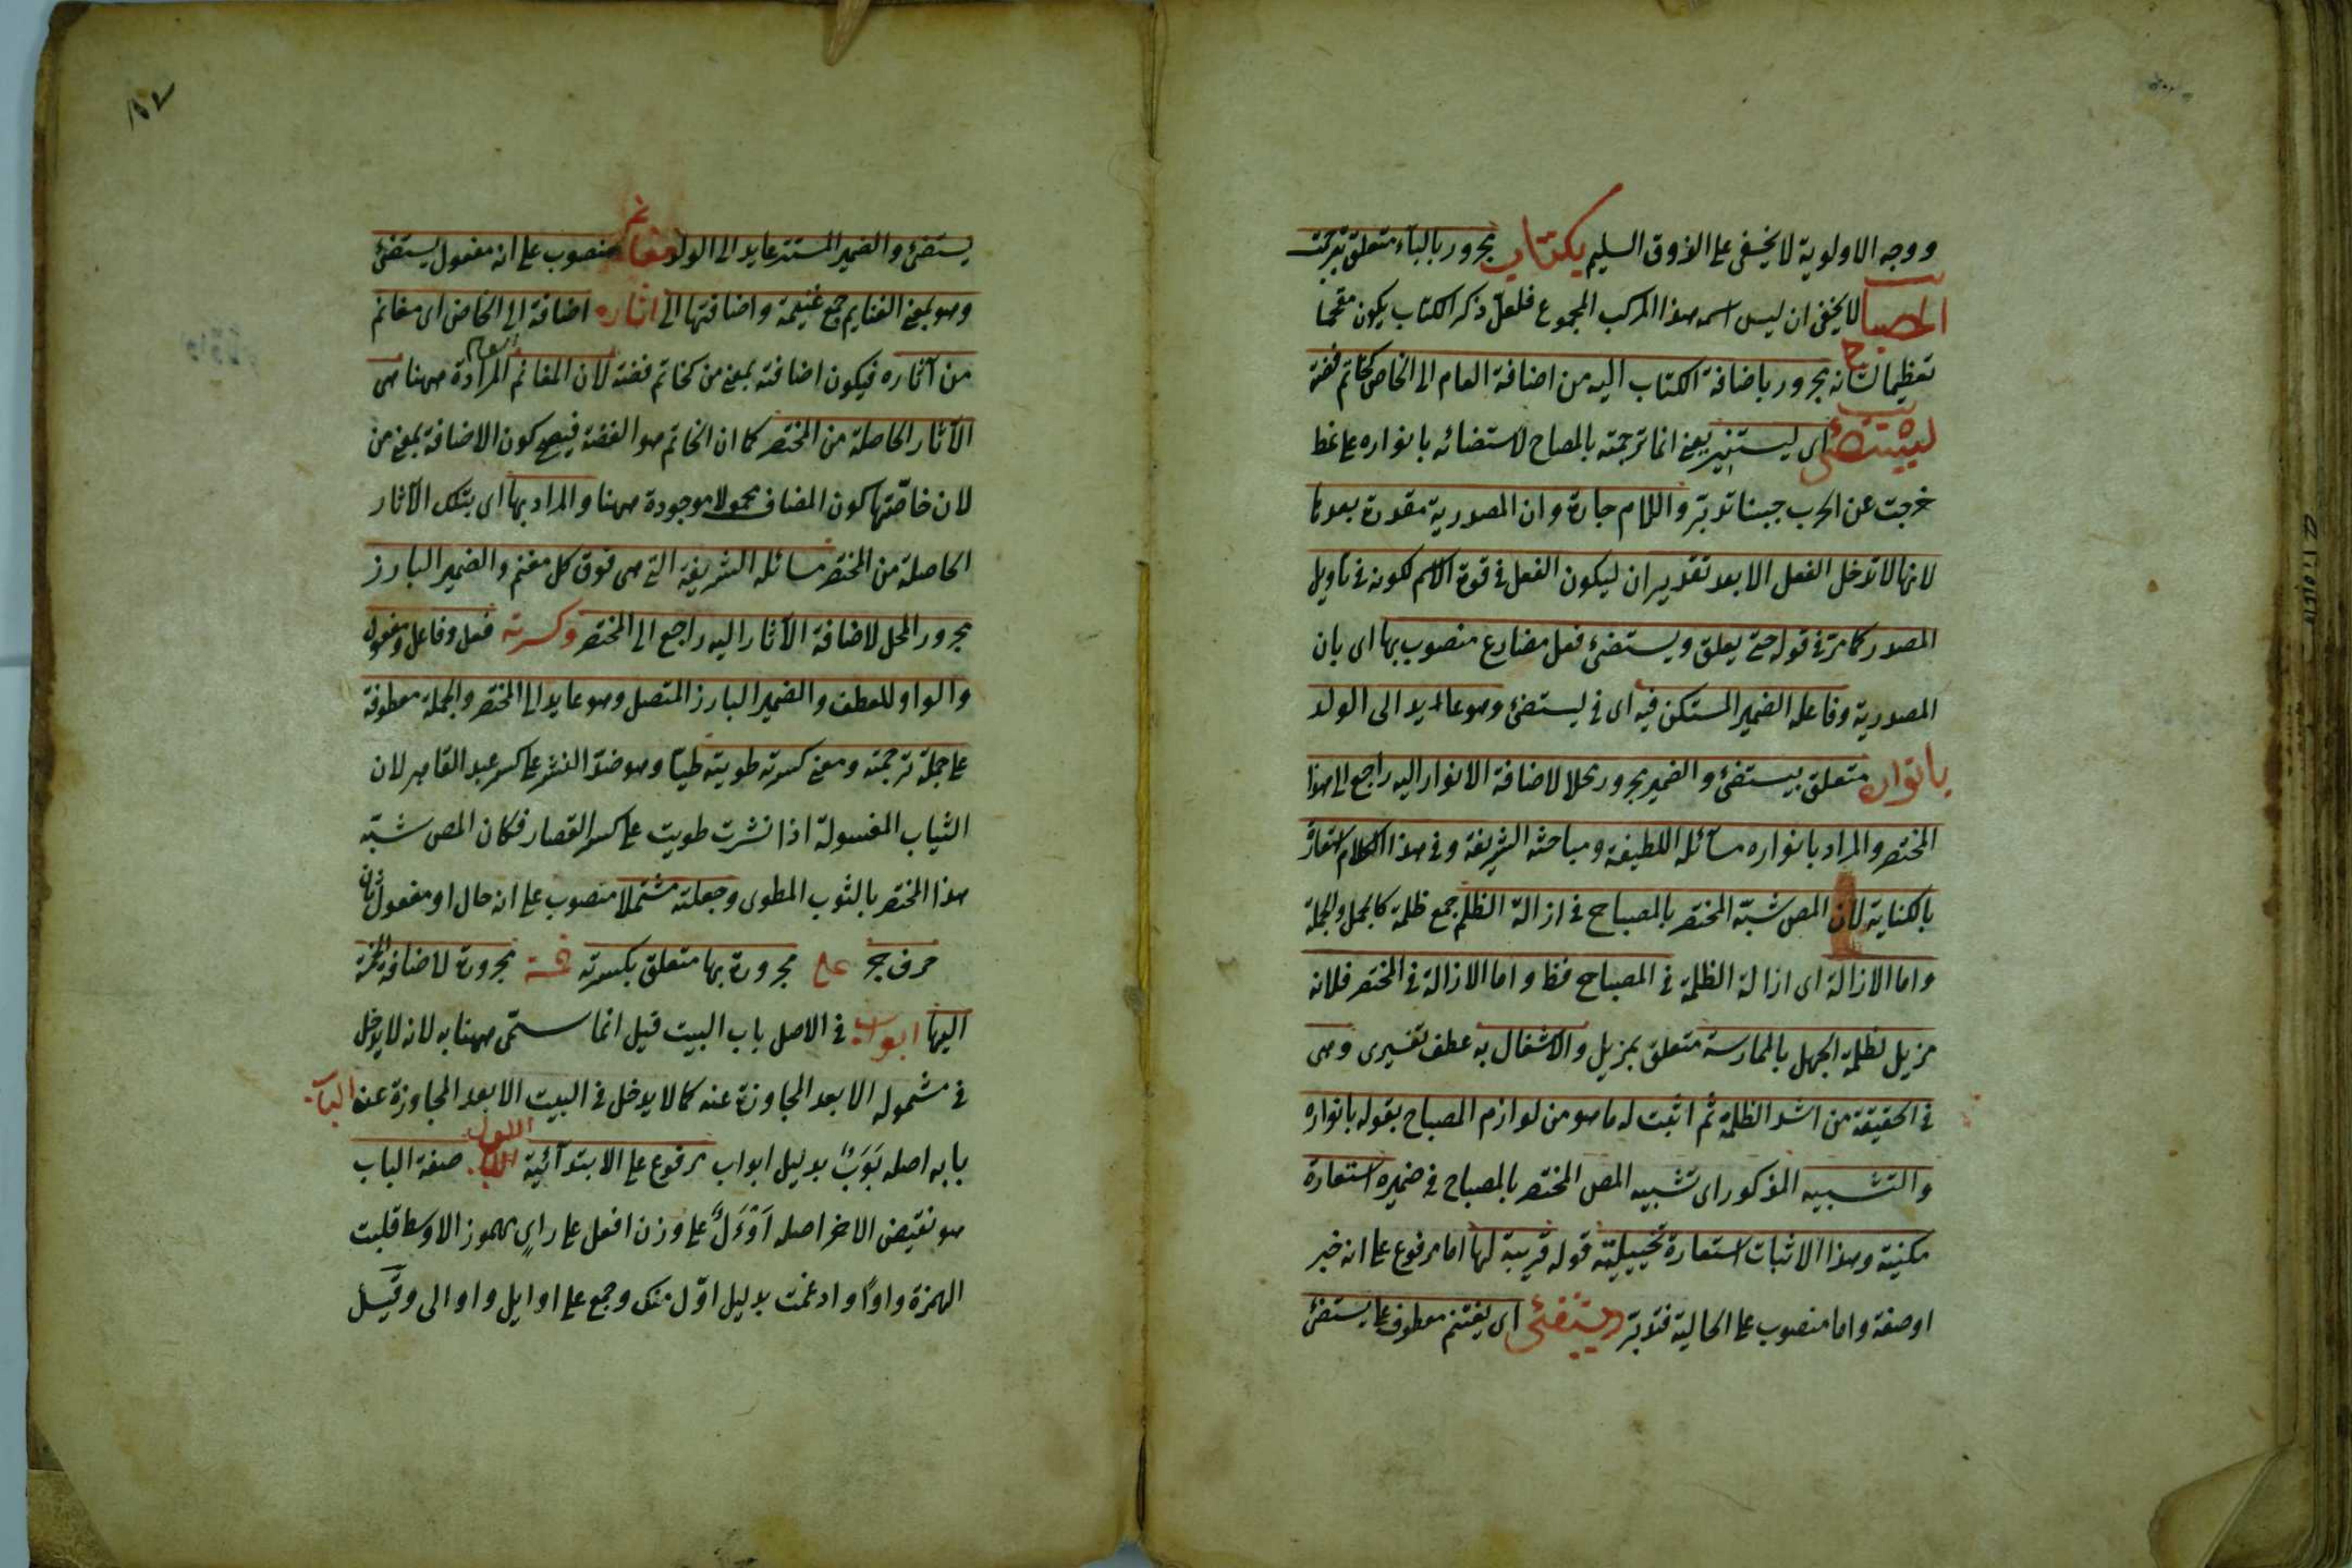 ووجه الاولوية لا يخفى على الذوق السليم بكتاب مجرور بالباء متعلق بترجمت
المصباح لا يخفى ان ليس اسمه هذا المركب المجموع فلعل ذكر الكتاب يكون مقحما
تعظيما لشانه مجرور باضافة الكتاب اليه من اضافة العام الى الخاص كخاتم فضة
ليستضئ اى ليستنير يعنى انما ترجمته بالمصباح لاستضائه بانواره على نمط
خرجت عن الحرب جبنا تدبر واللام جارة وان المصدرية مقدرة بعدها
لانها لا تدخل الفعل الا بعد تقدير ان ليكون الفعل فى قوة الاسم لكونه فى تأويل
المصدر كما مر فى قوله حتى يعلق ويستضئ فعل مضارع منصوب بها اى بان
المصدرية وفاعله الضمير المستكن فيه اى فى ليستضئ وهو عائد الى الولد
بانواره متعلق بيستضئ والضمير مجرور محلا لاضافة الانوار اليه راجع الى هذا
المختصر والمراد بانواره مسائله اللطيفة ومباحثه الشريفة وفى هذا الكلام استعارة
بالكناية لان المص شبه المختصر بالمصباح فى ازالة الظلم جمع ظلمة كالجمل والجملة
واما الازالة اى ازالة الظلمة فى المصباح فظ واما الازالة فى المختصر فلانه
مزيل لظلمة الجهل بالممارسة متعلق بمزيل والاشتغال به عطف تفسيرى وهى
فى الحقيقة من اشد الظلمة ثم اثبت له ما هو من لوازم المصباح بقوله بانواره
والتشبيه المذكور اى تشبيه المص المختصر بالمصباح فى ضميره استعارة
مكنية وهذا الاثبات استعارة تخييلية قوله قريبة لها اما مرفوع على انه خبر
او صفة واما منصوب على الحالية فتدبر ويستفئ اى يغتنم معطوف على يستضئ
يستضئ والضمير المستتر عايد الى الولد مغانم منصوب على انه مفعول يستفئ
وهو بمعنى الغنايم جمع غنيمة واضافتها الى اثاره اضافة الى الخاص اى مغانم
من آثاره فيكون اضافته بمعنى من كخاتم فضة لان المغانم المرادة ههنا هى
الآثار الحاصلة من المختصر كما ان الخاتم هو الفضة فيصح كون الاضافة بمعنى من
لان خاصّتها كون المضاف محمولا موجودة ههنا والمراد بها اى بتلك الآثار
الحاصلة من المختصر مسائله الشريفة التى هى فوق كل مغنم والضمير البارز
مجرور المحل لاضافة الآثار اليه راجع الى المختصر وكسرته فعل وفاعل ومفعول
والواو للعطف والضمير البارز المتصل وهو عايد الى المختصر والجملة معطوفة
على جملة ترجمته ومعنى كسرته طويته طيّا وهو ضدّ النشر على كسر عبد القاهر لان
الثياب المغسولة اذا نشرت طويت على كسر القصار فكان المص شبّه
هذا المختصر بالثوب المطوى وجعلته مشتملا منصوب على انه حال او مفعول ثان
حرف جر على مجرورة بها متعلق بكسرته خمسة مجرورة لاضافة الخمسة
اليها ابواب فى الاصل باب البيت قيل انما سمّى ههنا به لانه لا يدخل
فى مشموله الا بعد المجاوزة عنه كما لا يدخل فى البيت الا بعد المجاوزة عن الباب
بابه اصله بَوَبٌ بدليل ابواب مرفوع على الابتدائية الاول صفة الباب
هو نقيض الاخر اصله اَوْءَلٌ على وزن افعل على راىٍ مهموز الاوسط قلبت
الهمزة واوًا وادغمت بدليل اوّل منك وجمع على اوايل واوالى وقيل